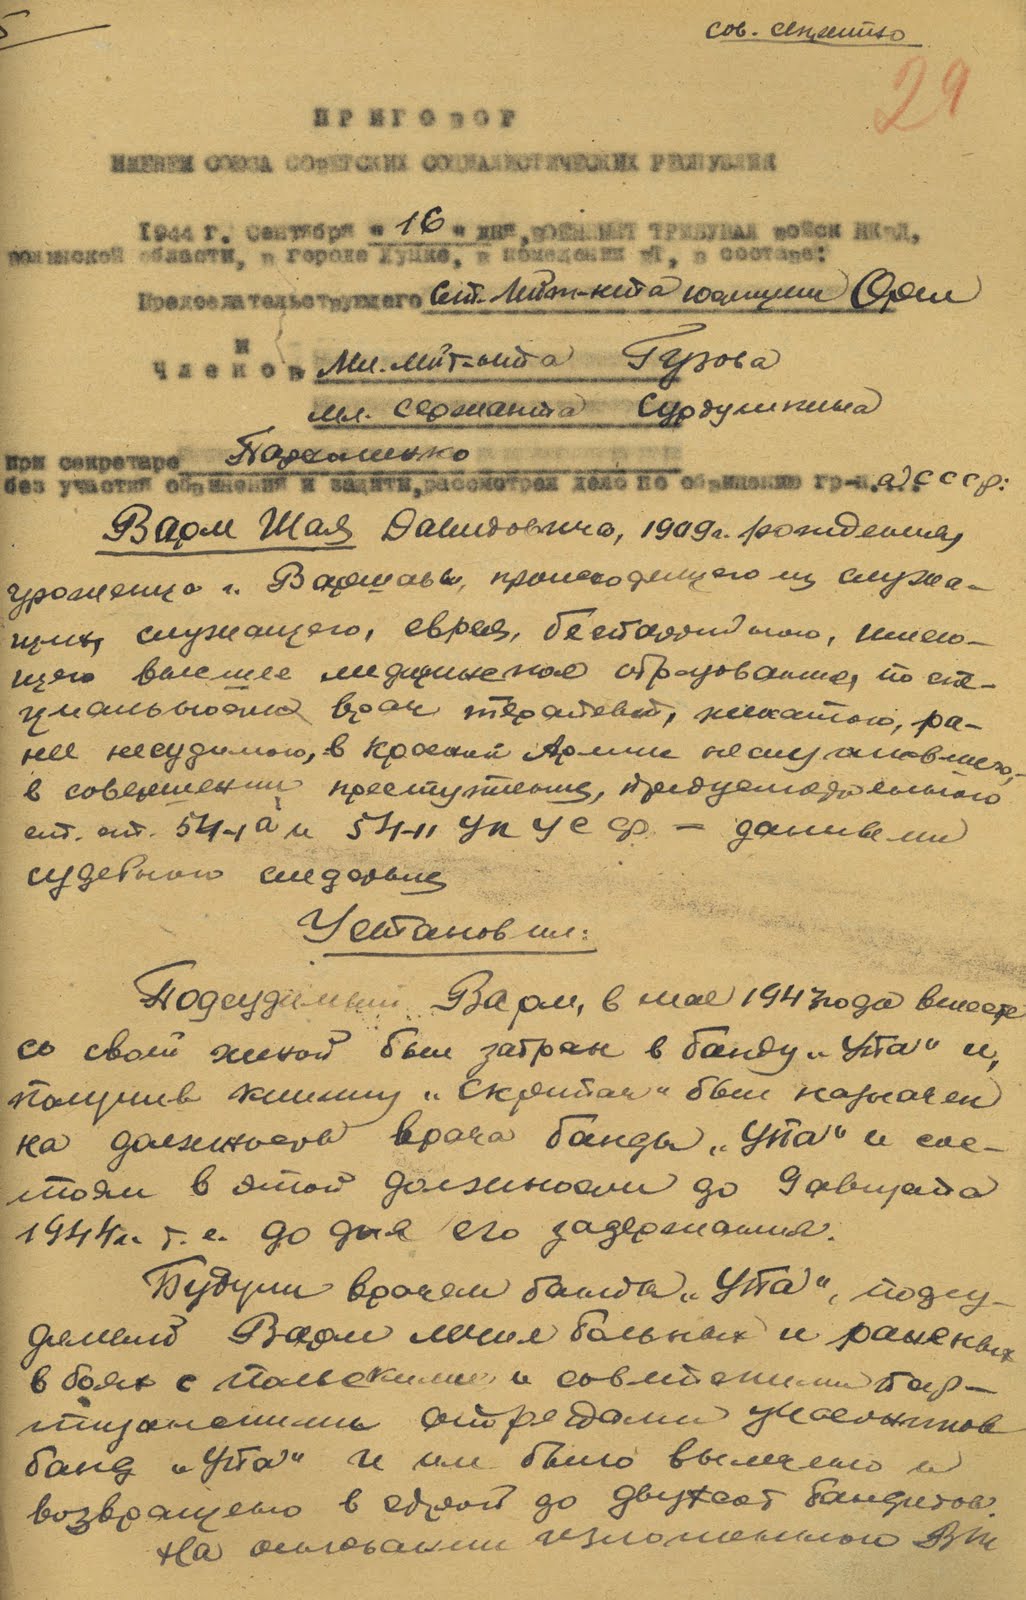 5
сов. секретно
29
ПРИГОВОР
ИМЕНЕМ СОЮЗА СОВЕТСКИХ СОЦИАЛИСТИЧЕСКИХ РЕСПУБЛИК
1944 г. Сентября "16" дня, ВОЕННЫЙ ТРИБУНАЛ войск НКВД,
волынской области, в городе Луцке, в помещении ВТ, в составе:
Председательствующего ст. лейт-нта юстиции
и
Членов мл. лейт-нта Гузова
мл. сержанта
при секретаре Пархоменко
без участия обвинения и защиты, рассмотрел дело по обвинению гр-на СССР:
Варм Шая Давидовича, 1909 г. рождения,
уроженца г. Варшавы, происходящего из служа-
щих, служащего, еврея, беспартийного, имею-
щего высшее медицинское образование, по спе-
циальности врач терапевт, женатого, ра-
нее несудимого, в Красной Армии не служившего,
в совершении преступления, предусмотренного
ст. ст. 54-1а и 54-11 УК УССР – данными
судебного следствия
Установил:
Подсудимый Варм, в мае 1943 года вместе
со своей женой был забран в банду „УПА" и,
получив кличку „Скрипач" был назначен
на должность врача банды „УПА" и сос-
тоял в этой должности до 9 августа
1944 г. т. е. до дня его задержания.
Будучи врачем банды „УПА", подсу-
димый Варм лечил больных и раненых
в боях с польскими и советскими пар-
тизанскими отрядами участников
банд „УПА" и им было вылечено и
возвращено в строй до двухсот бандитов.
На основании изложенного ВТ